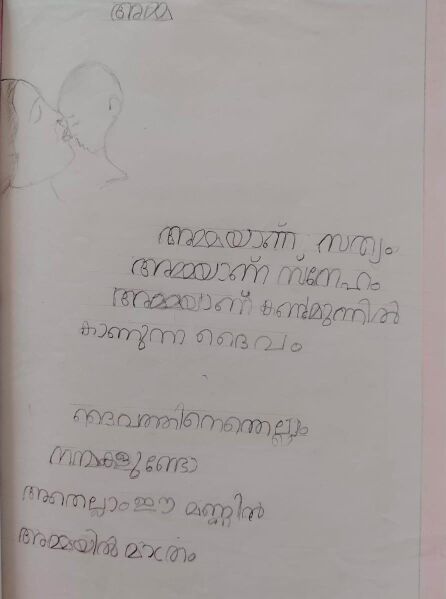 അമ്മ
അമ്മയാണ് സത്യം
അമ്മയാണ് സ്നേഹം
അമ്മയാണ് കണ്മുന്നിൽ
കാണുന്ന ദൈവം
ദൈവത്തിനെന്തെല്ലാം
നന്മകളുണ്ടോ
അതെല്ലാം ഈ മണ്ണിൽ
അമ്മയിൽ മാത്രം